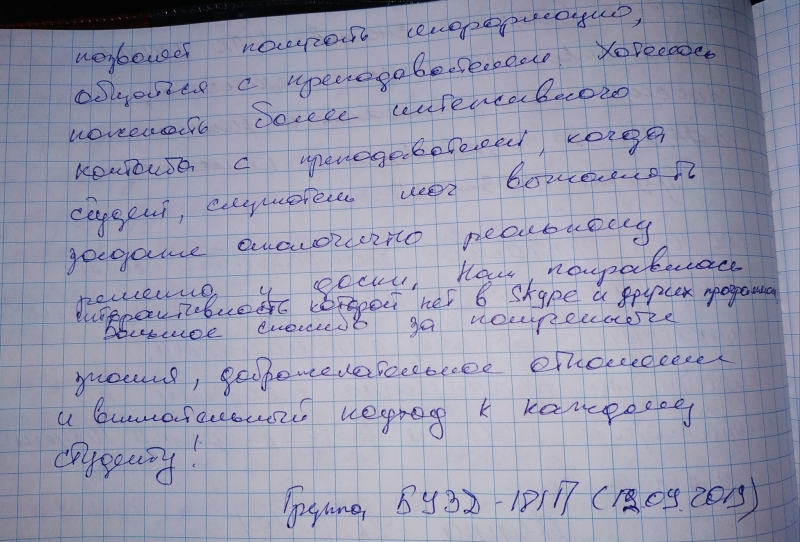 позволяет получать информацию,
общаться с преподавателем. Хотелось
пожелать более интенсивного
контакта с преподавателем, когда
студент, слушатель мог выполнять
задание аналогично реальному
решению у доски. Нам понравилась
интерактивность которой нет в Skype и других программах
Большое спасибо за полученные
знания, доброжелательное отношение
и внимательный подход к каждому
студенту!
Группа БУЗД-181П (12.09.2019)